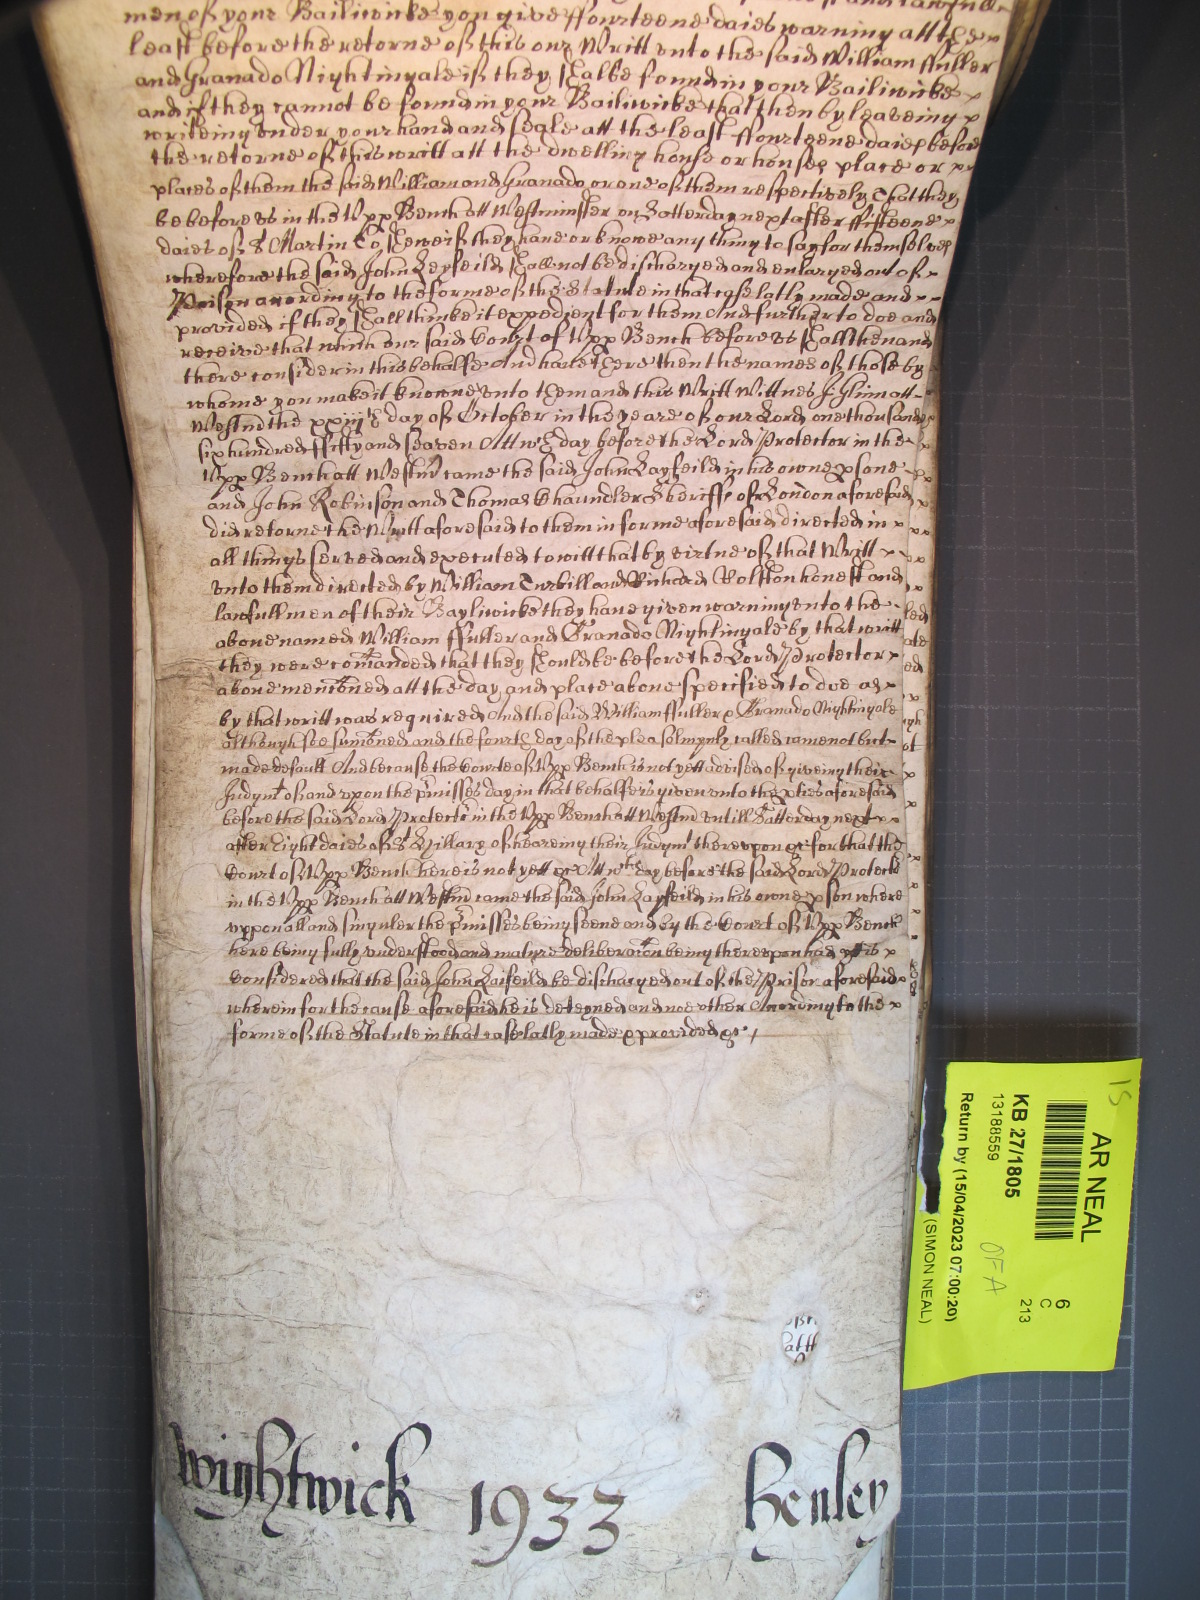 men of your Bailiwicke you give ffourteene daies warning att the
least before the retorne of this our Writt unto the said William ffuller
and Granado Nightingale if they shalbe found in your Bailiwicke
and if they cannot be found in your Bailiwicke that then by leaveing
writeing under your hand and seale att the least ffourteene daies before
the retorne of this writt att the dwelling house or houses place or
places of them the said William and Granado or one of them respectively That they
be before us in the Upp Bench att Westminster on Satterday next after ffifteene
daies of St Martin To shewe if they have or knowe any thing to say for themselves
wherefore the said John Leyfeild shall not be discharged and enlarged out of
Prison according to the forme of the Statute in that case latly made and
provided if they shall thinke it expedient for them And further to doe and
receive that which our said Court of Upp Bench before us shall then and
there consider in this behalfe And have there then the names of those by
whome you make it knowne unto them and this Writt Wittnes J Glinn att
Westm the xxiijth day of October in the yeare of our Lord one thousand
six hundred ffifty and seaven Att wch day before the Lord Protector in the
Upp Bench att Westm came the said John Layfeild in his owne pson
and John Robinson and Thomas Chaundler Sheriffs of London aforesaid
did retorne the Writt aforesaid to them in forme aforesaid directed in
all things served and executed to witt that by virtue of that Writt
unto them directed by William Turbill and Richard Colston honest and
lawfull men of their Bayliwicke they have given warning unto the
above named William ffuller and Granado Nightingale by that writt
they were comanded that they should be before the Lord Protector
above menconed att the day and place above specified to doe as
by that writt was required And the said William ffuller & Granado Nightingale
although soe sumoned and the fourth day of the plea solempnly called came not but
made default And because the Courte of Upp Bench is not yett advised of giveing their
Judgmt of and upon the pmisses day in that behalfe is given unto the pties aforesaid
before the said Lord Protector in the Upp Bench att Westm untill Satterday next
after Eight daies of St Hillary of heareing their Judgmt thereupon &c for that the
Court of Upp Bench here is not yett &c Att wch day before the said Lord Protector
in the Upp Bench att Westm came the said John Layfeild in his owne pson where
uppon all and singuler the pmisses being seene and by the Court of Upp Bench
here being fully understood and mature deliberacon being thereupon had ytt is
Considered that the said John Laifeild be discharged out of the Prison aforesaid
wherein for the cause aforesaid he is deteyned and noe other According to the
forme of the Statute in that case latly made & provided &c
Wightwick 1933 Henley
15
AR NEAL
KB 27/1805
13188559
Return by (15/04/2023 07:00:20)
(SIMON NEAL)
OFA
6
C
213